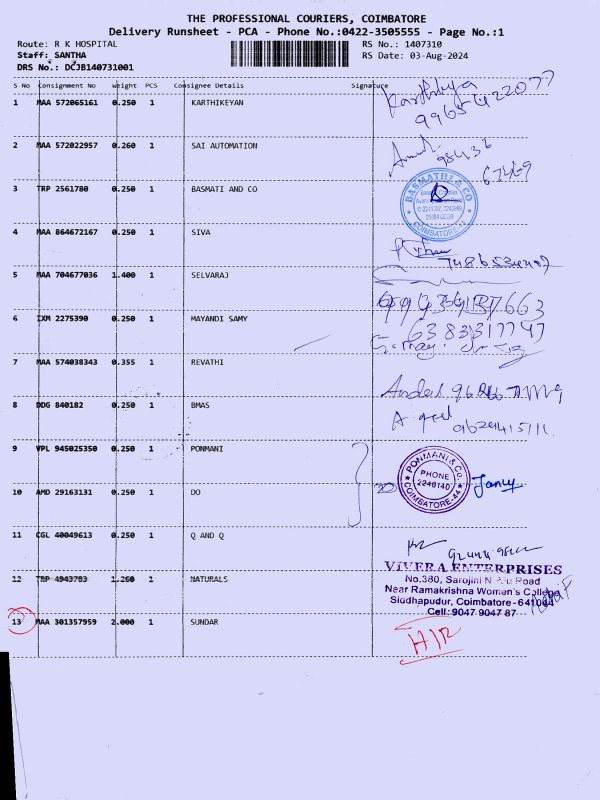 THE PROFESSIONAL COURIERS, COIMBATORE
Delivery Runsheet - PCA - Phone No.:0422-3505555 - Page No.:1
Route: R K HOSPITAL
Staff: SANTHA
DRS No.: DCJB140731001
RS No.: 1407310
RS Date: 03-Aug-2024
S No Consignment No Weight PCS Consignee Details Signature
1 MAA 572065161 0.250 1 KARTHIKEYAN
2 MAA 572022957 0.260 1 SAI AUTOMATION
98436
67469
3 TRP 2561780 0.250 1 BASMATI AND CO
BASMATHI & CO
COIMBATORE-44
4 MAA 864672167 0.250 1 SIVA
5 MAA 704677036 1.400 1 SELVARAJ
6 IXM 2275390 0.250 1 MAYANDI SAMY
6383317747
7 MAA 574038343 0.355 1 REVATHI
8 DDG 840182 0.250 1 BMAS
9 VPL 945025350 0.250 1 PONMANI
PONMANI & CO.
PHONE
2246140
COIMBATORE-44
10 AMD 29163131 0.250 1 DO
11 CGL 40049613 0.250 1 Q AND Q
VIVERA ENTERPRISES
No.380, Sarojini Road
Near Ramakrishna Women's College
Siddhapudur, Coimbatore - 641044
Cell: 9047 9047 87
12 TRP 4943783 1.260 1 NATURALS
13 MAA 301357959 2.000 1 SUNDAR